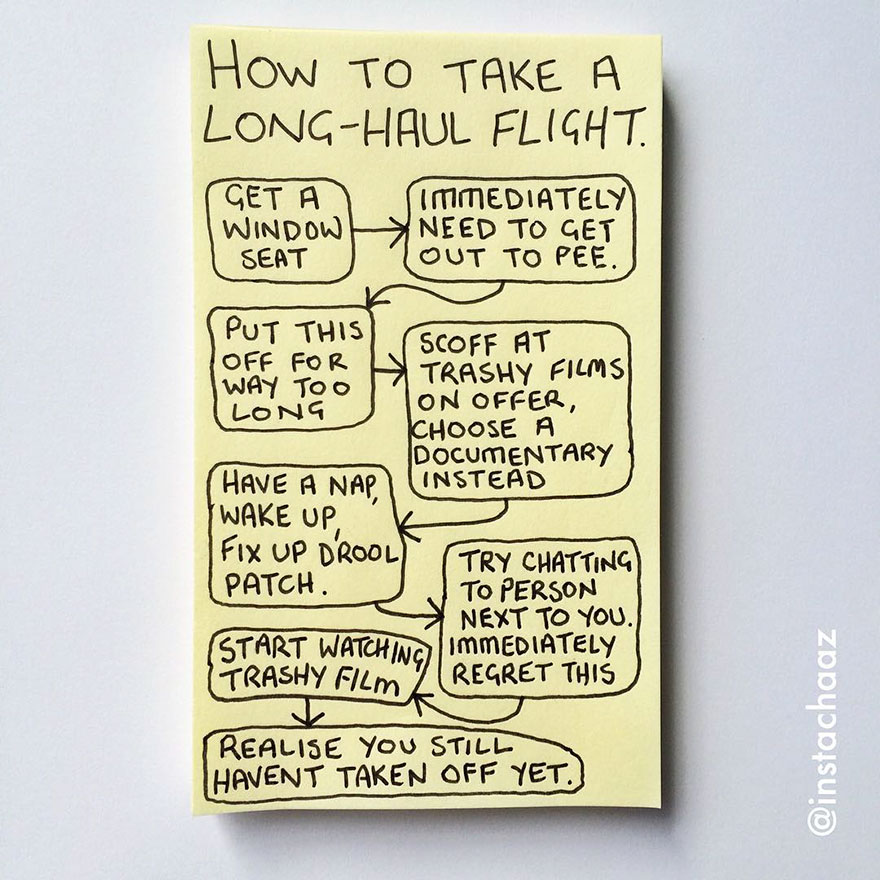 HOW TO TAKE A
LONG-HAUL FLIGHT.
GET A
WINDOW
SEAT
IMMEDIATELY
NEED TO GET
OUT TO PEE.
PUT THIS
OFF FOR
WAY TOO
LONG
SCOFF AT
TRASHY FILMS
ON OFFER,
CHOOSE A
DOCUMENTARY
INSTEAD
HAVE A NAP,
WAKE UP,
FIX UP DROOL
PATCH.
TRY CHATTING
TO PERSON
NEXT TO YOU.
IMMEDIATELY
REGRET THIS
START WATCHING
TRASHY FILM
REALISE YOU STILL
HAVENT TAKEN OFF YET.
@instachaaz